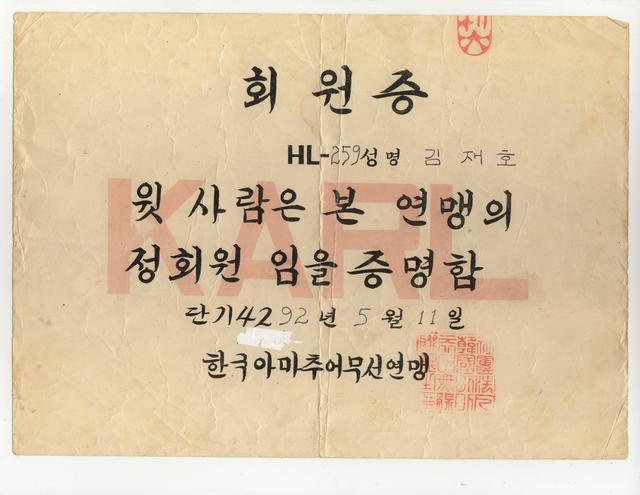 회원증
HL-259 성명 김재호
KARL
윗 사람은 본 연맹의
정회원 임을 증명함
단기 4292년 5월 11일
한국아마추어무선연맹